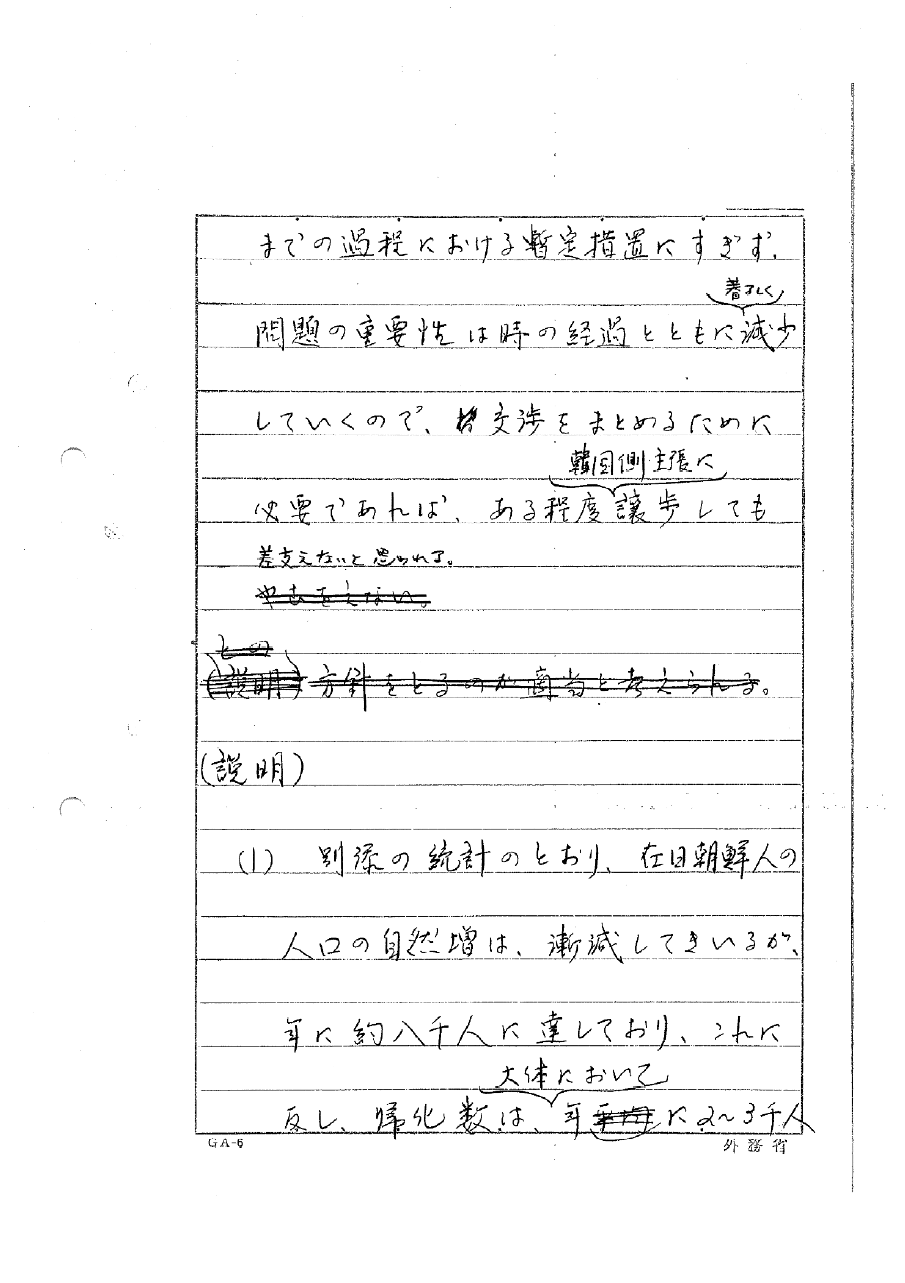 までの過程における暫定措置にすぎず、
著るしく
問題の重要性は時の経過とともに減少
していくので、交渉をまとめるために
韓国側主張に
必要であれば、ある程度譲歩しても
差支えないと思われる。
やむをえない。
との
(説明) 方針をとるのが適当と考えられる。
(説明)
(1) 別添の統計のとおり、在日朝鮮人の
人口の自然増は、漸減してきいるが、
年に約八千人に達しており、これに
大体において
反し、帰化数は、年平均に2~3千人
GA-6 外務省